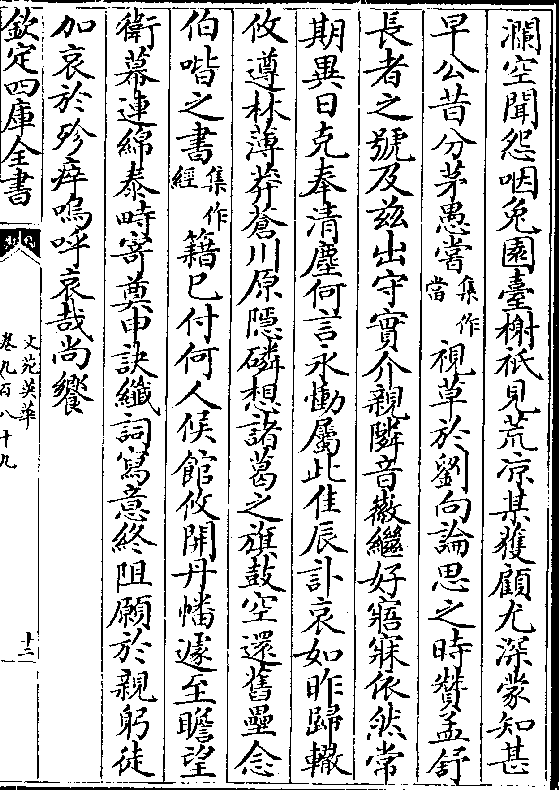 瀾空聞怨咽兔園臺榭祇見荒凉某獲顧尤深蒙知甚
早公昔分茅愚嘗集作當視草於劉向論思之時賛孟舒
長者之號及兹出守實介親隣音徽繼好寤寐依然常
期異日克奉清塵何言永慟屬此隹辰訃哀如昨歸轍
攸遵林薄莽蒼川原隱磷想諸葛之旗鼓空還舊壘念
伯喈之書集作經籍已付何人候館攸開丹幡遽至瞻望
衛幕連綿泰畤寄奠申訣纖詞寫意終阻願於親躬徒
加哀於殄瘁嗚呼哀哉尚饗
欽定四庫全書
文苑英華
卷九百八十九
十二